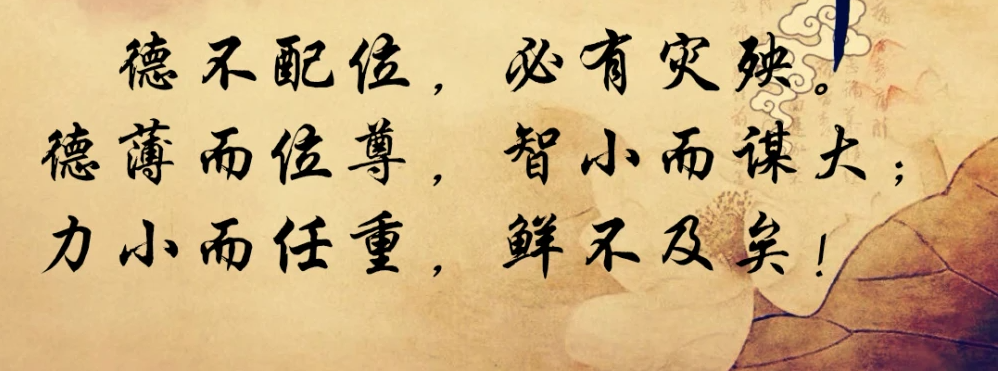 德不配位，必有灾殃。
德薄而位尊，智小而谋大；
力小而任重，鲜不及矣！